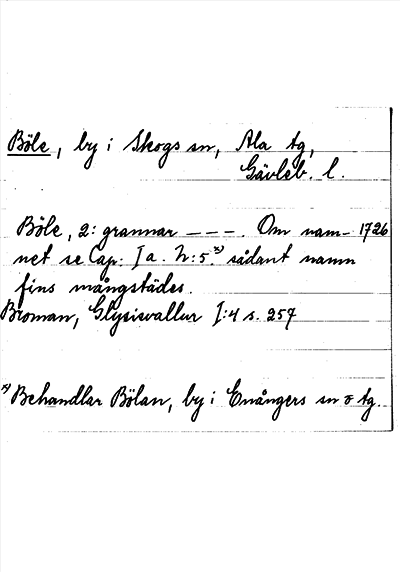 Böle, by i Skogs sn, Ala tg,
Gävleb. l.
Böle, 2: grannar – – –. Om nam- 1726
net se Cap: I a. N:5.x) sådant namn
fins mångstädes.
Broman, Glysisvallur I:4 s. 257
x) Behandlar Bölan, by i Enångers sn o tg.